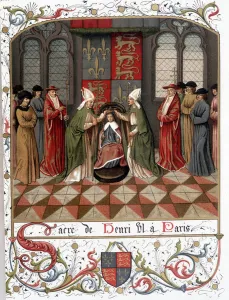 Sacre de Henri VI à Paris.